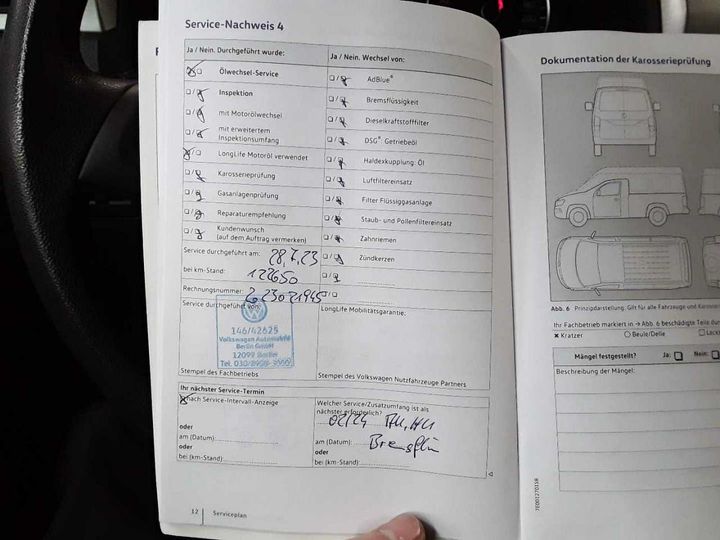 Service-Nachweis 4
Ja / Nein. Durchgeführt wurde:
Ja / Nein. Wechsel von:
Ölwechsel-Service
Inspektion
mit Motorölwechsel
mit erweitertem
Inspektionsumfang
LongLife Motoröl verwendet
Karosserieprüfung
Gasanlagenprüfung
Reparaturempfehlung
Kundenwunsch
(auf dem Auftrag vermerken)
AdBlue®
Bremsflüssigkeit
Dieselkraftstofffilter
DSG® Getriebeöl
Haldexkupplung: Öl
Luftfiltereinsatz
Filter Flüssiggasanlage
Staub- und Pollenfiltereinsatz
Zahnriemen
Zündkerzen
Service durchgeführt am: 28.7.23
bei km-Stand: 122650
Rechnungsnummer:
Service durchgeführt von:
LongLife Mobilitätsgarantie:
146/42625
Volkswagen Automobile
Berlin GmbH
12099 Berlin
Stempel des Fachbetriebs
Stempel des Volkswagen Nutzfahrzeuge Partners
Ihr nächster Service-Termin
nach Service-Intervall-Anzeige
oder
am (Datum):
oder
bei (km-Stand):
Welcher Service/Zusatzumfang ist als
nächster erforderlich?
02/24
am (Datum):
Bremsflü
oder
bei (km-Stand):
12 Serviceplan
Dokumentation der Karosserieprüfung
Abb. 6 Prinzipdarstellung. Gilt für alle Fahrzeuge und
Ihr Fachbetrieb markiert in → Abb. 6 beschädigte Teile
Kratzer
Beule/Delle
Mängel festgestellt? Ja: Nein:
Beschreibung der Mängel: